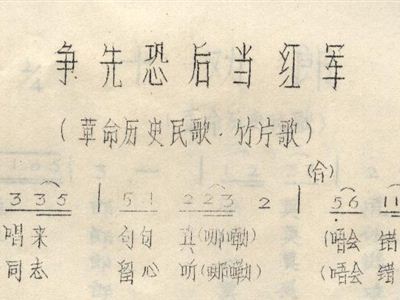 争先恐后当红军
（革命历史民歌·竹片歌）
（合）
3 3 5 | 5 1 2 2 3 2 | 5 6 1 1
唱来 句句真（哪嘞） （唔会错
同志 留心听（哪嘞） （唔会错